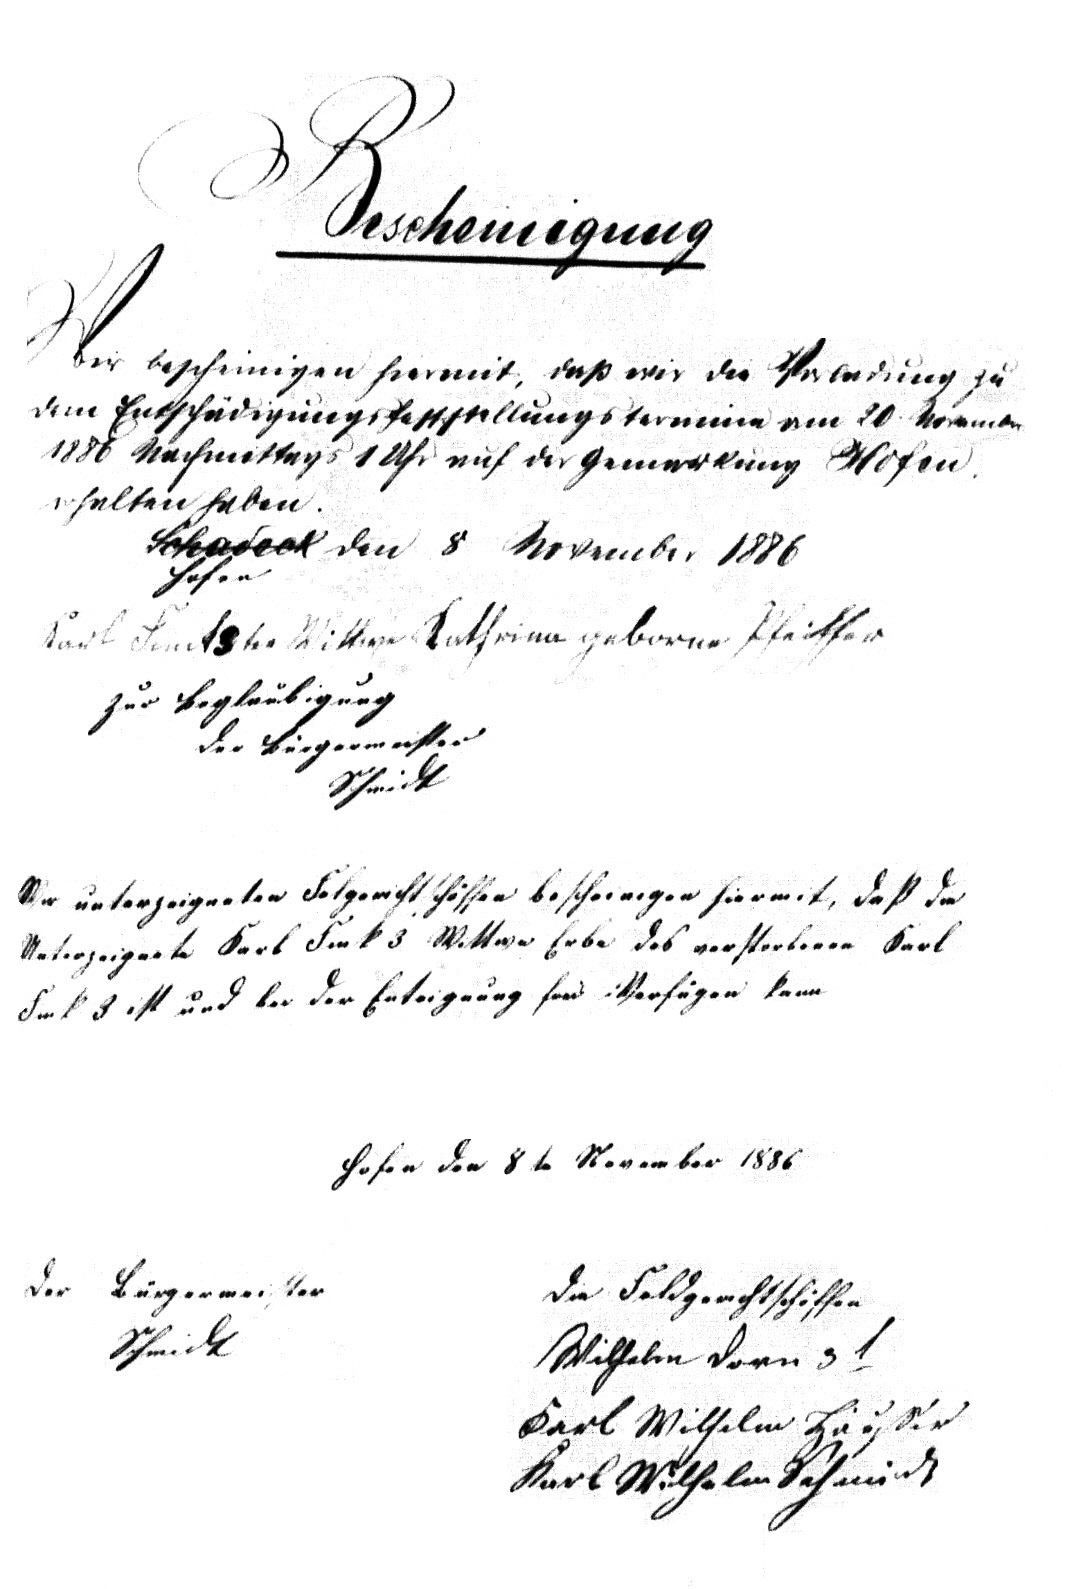 Bescheinigung
Wir bescheinigen hiermit, daß wir die Vorladung zu
dem Entschädigungsfeststellungstermine am 20. November
1886 Nachmittags 1 Uhr auf der Gemarkung Hofen
erhalten haben.
Schadeck den 8 November 1886
Hofen
Karl Fink 3ter Wittwe Kathrina geborne Pfeiffer
zur Beglaubigung
der Bürgermeister
Schmidt
Wir unterzeigneten Felgerichtschöffen bescheinigen hiermit, daß die
Unterzeignete Karl Fink 3 Wittwe Erbe des verstorbenen Karl
Fink 3 ist und bei der Enteignung frei Verfügen kann
Hofen den 8te November 1886
Der Bürgermeister
Schmidt
Die Feldgerichtschöffen
Wilhelm Dorn 3t
Karl Wilhelm Häußer
Karl Wilhelm Schmidt